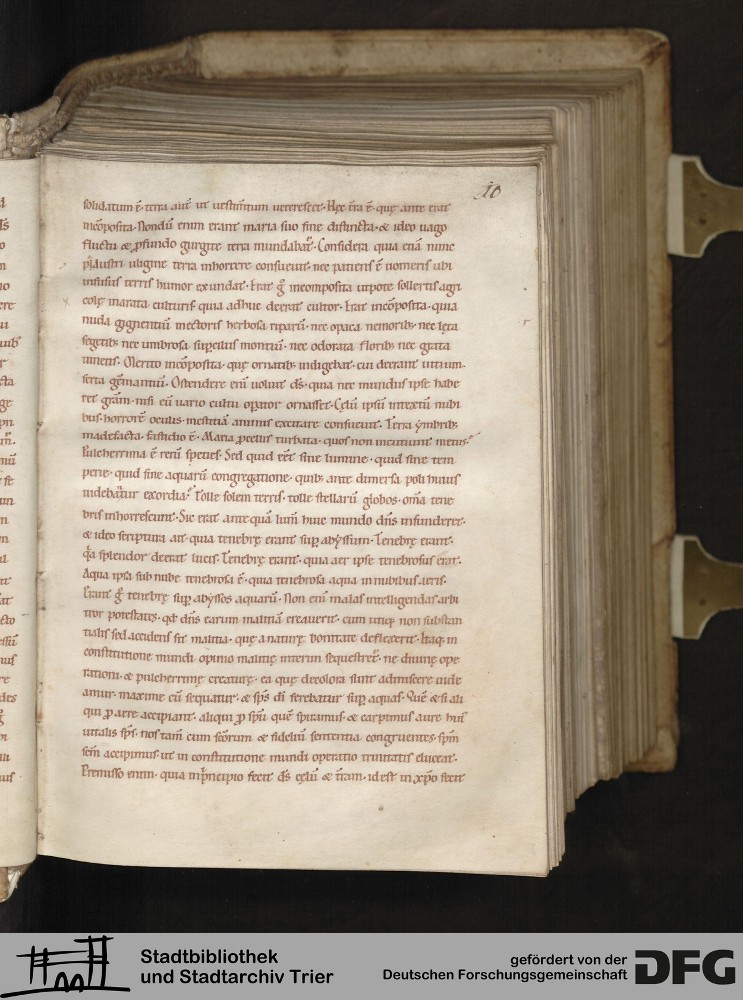 10
solidatum ē· terra aut̄ ut uestim̄tum ueterescet· Hęc t̄ra ē· quę ante erat
incōposita· Nondū enim erant maria suo fine distincta· & ideo uago
fluctu & ꝓfundo gurgite terra inundabat᷑· Considera quia etiā nunc
palustri uligine terra inhorrere consueuit· nec patiens ē uomeris ubi
infusus terris humor exundat· Erat g̊ incomposita utpote sollertis agri
colę inarata culturis· quia adhuc deerat cultor· Erat incōposita· quia
nuda gignentiū· inectoris herbosa riparū· nec opaca nemorib;· nec lęta
segetib;· nec umbrosa suꝑciliis montiū· nec odorata florib;· nec grata
uinetis· Merito incōposita· quę ornatib; indigebat· cui deerant uitium·
serta gēmantiū· Ostendere eni uoluit d̄s· quia nec mundus ipse habe
ret grām· nisi eū uario cultu oꝑator ornasset· Cęlū ipsū intextū nubi
bus· horrorē oculis· mestitiā animis excitare consueuit· Terra ymbrib;
madefacta· fastidio ē· Maria ꝓcellis turbata· quos non incutiunt metus·
Pulcherrima ē rerū species· Sed quid eēt sine lumine· quid sine tem
perie· quid sine aquarū congregatione· quib; ante dimersa poli huius
uidebātur exordia· Tolle solem terris· tolle stellarū globos· om̄a tene
bris inhorrescunt· Sic erat antequā lum̄ huic mundo dn̄s infunderet·
& ideo scriptura ait· quia tenebrę erant suꝑ abyssum· Tenebrę erant·
qa splendor deerat lucis· Tenebrę erant· quia aer ipse tenebrosus erat·
Aqua ipsa sub nube tenebrosa ē· quia tenebrosa aqua in nubibus aeris·
Erant g̊ tenebrę suꝑ abyssos aquarū· Non eni malas intelligendas arbi
tror potestates· qd̄ dn̄s earum malitiā creauerit· cum utiq; non substan
tialis sed accidens sit malitia· quę a naturę bonitate deflexerit· Itaq; in
constitutione mundi opinio malitię interim sequestret᷑· ne diuinę ope
rationi· & pulcherrimę creaturę· ea quę decolora sunt admiscere uide
amur· maxime cū sequatur· & sp̄s dī ferebatur suꝑ aquas· Quē & si ali
qui ꝓ aere accipiant· aliqui ꝓ sp̄u quē spiramus· & carpimus aure hui᷒
uitalis sp̄s· nos tam̄ cum sc̄orum & fideliū sententia congruentes· sp̄m
sc̄m accipimus· ut in constitutione mundi operatio trinitatis eluceat·
Premisso enim· quia in pͥncipio fecit d̄s cęlū & t̄ram· id est in xp̄o fecit
Stadtbibliothek
und Stadtarchiv Trier
gefördert von der
Deutschen Forschungsgemeinschaft
DFG